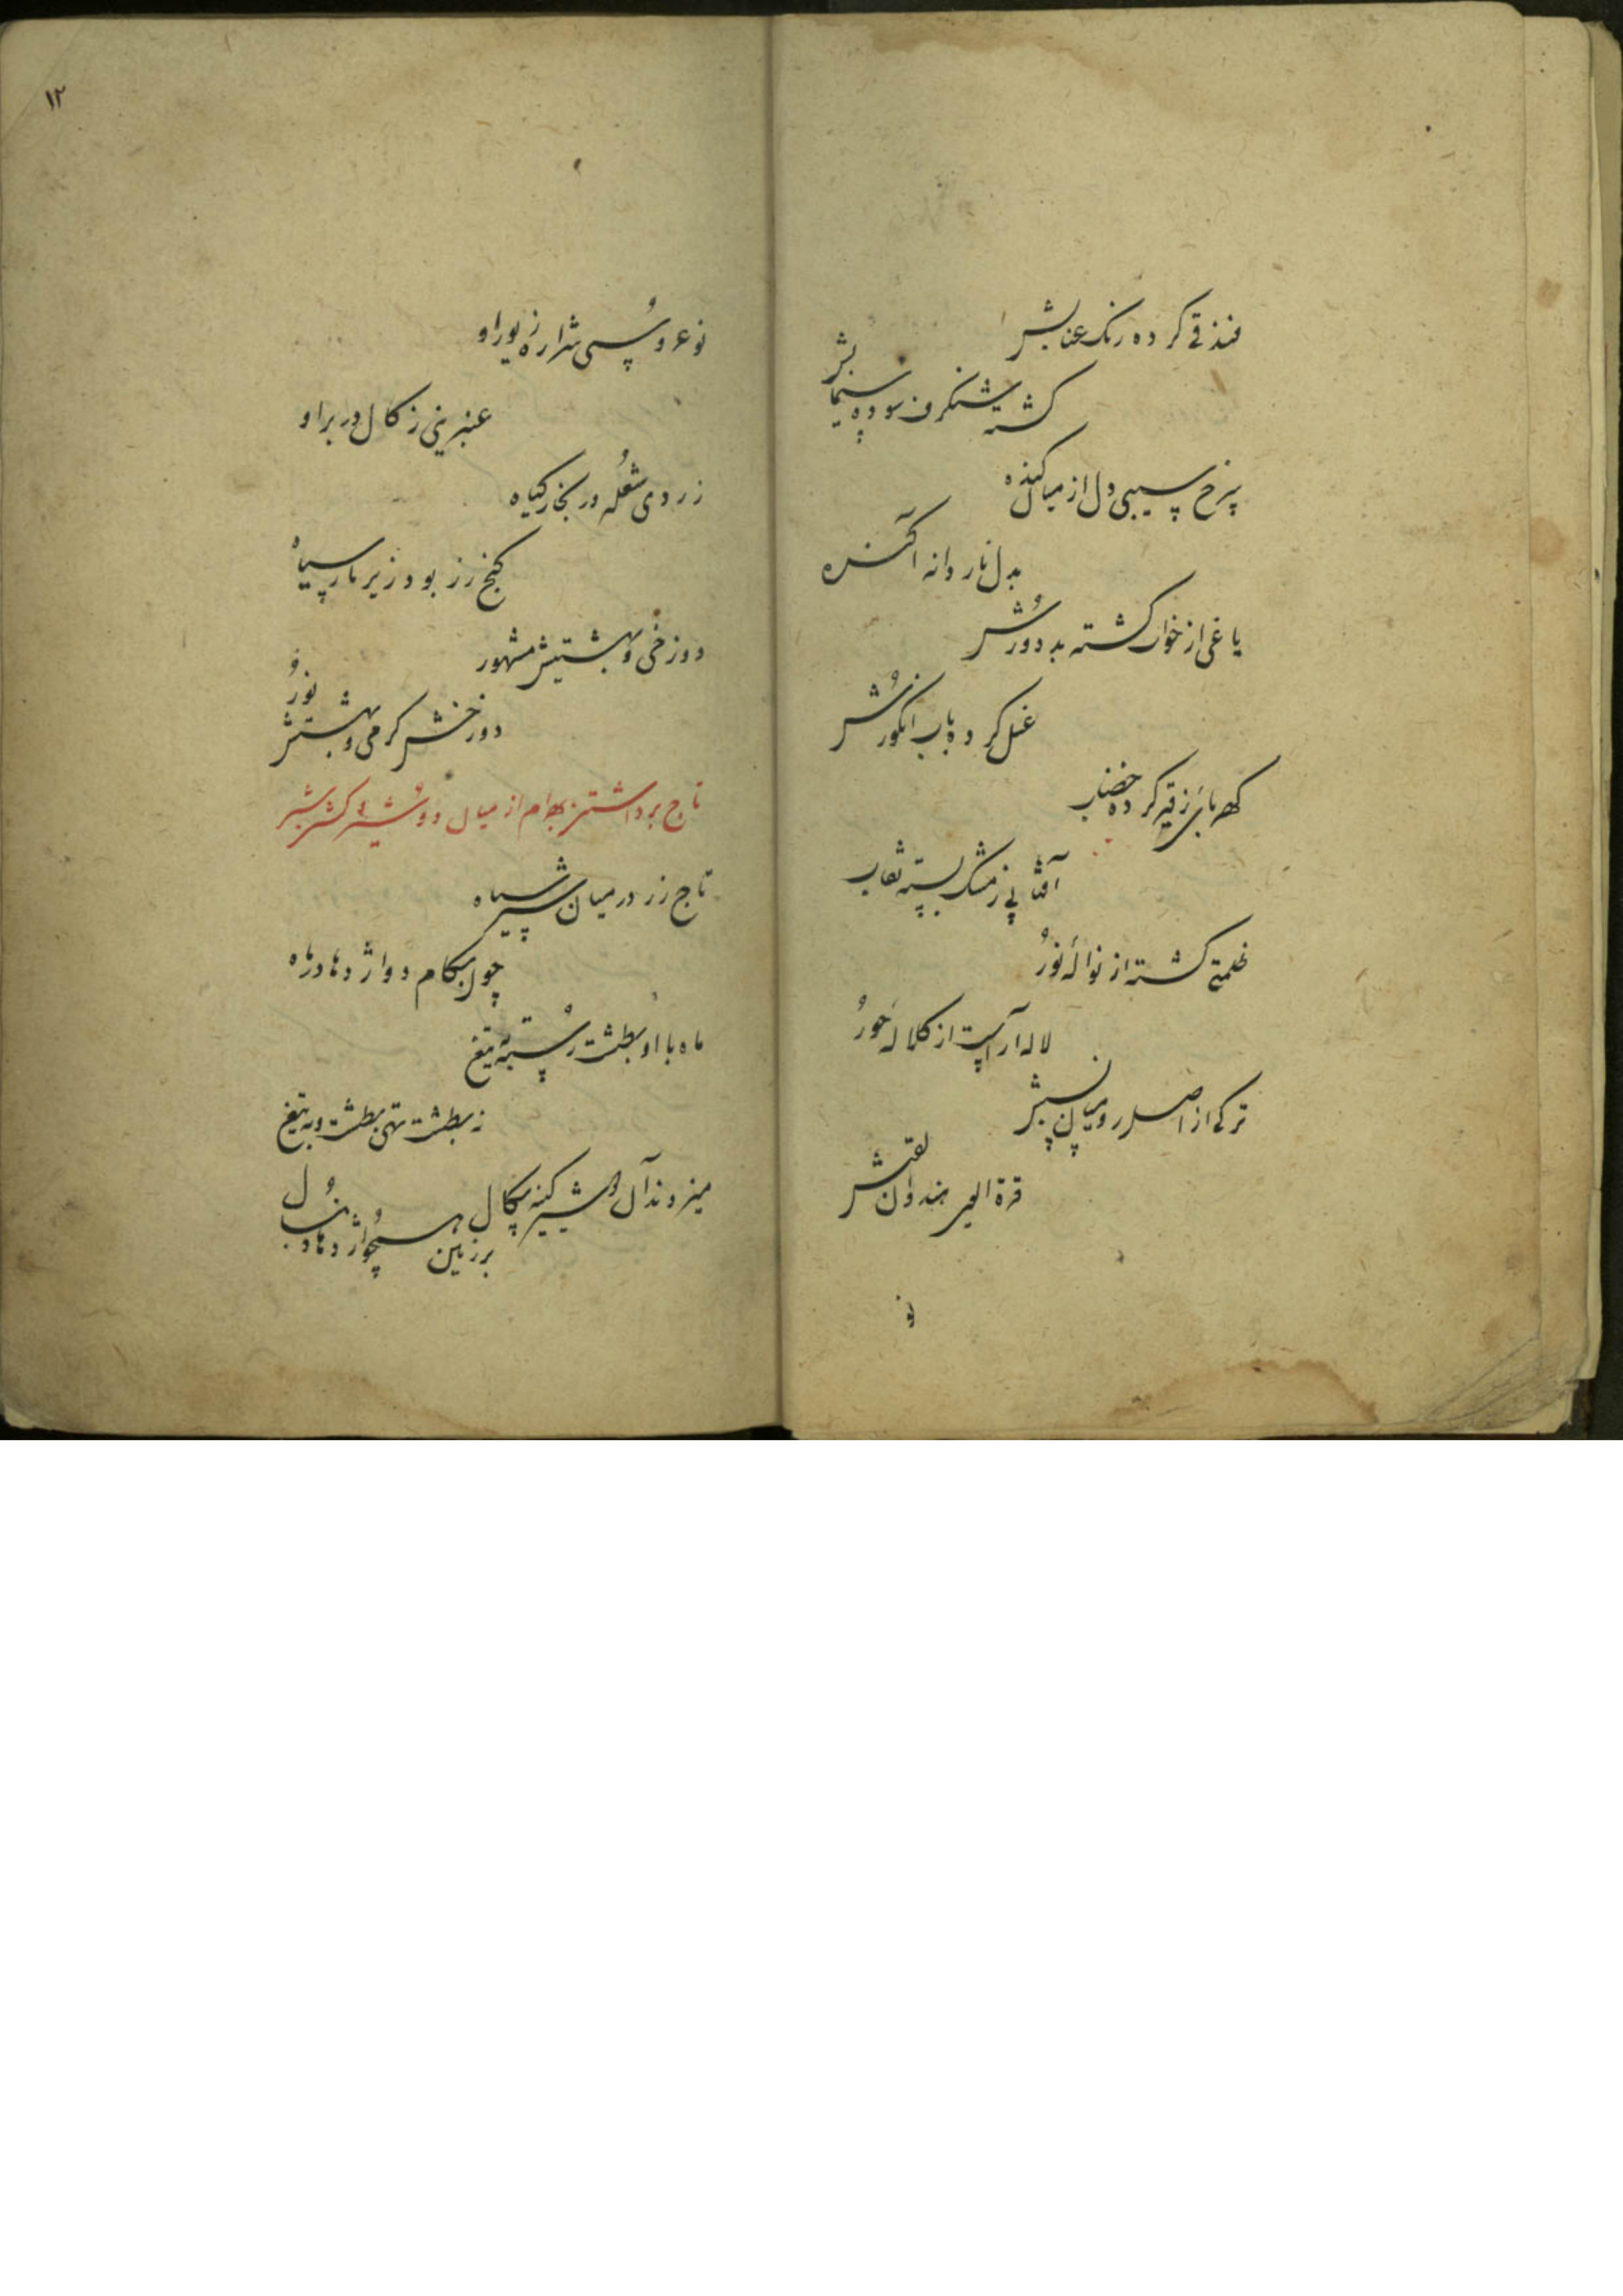 فندقی کرده رنک عنابش
کشته شنکرف سوده سیمابش
سرخ سیبی دل از میان کنده
بدل نار دانه آکنده
باغی از خوان کشته بد دورش
غسل کرده باب انکورش
کهربائی ز قیر کرده خضاب
آفتابی ز مشک بسته نقاب
ظلمتی کشته از نواله نور
لاله آراسته از کلاله حور
ترکی از اصل رومیان نسبش
قرة العین هندوان لقبش
نو
۱۲
نو عروسی شراره زیور او
عنبرینی ز کال در بر او
زردی شعله در بخار کیاه
کنج زر بود زیر مار سیاه
دوزخی و بهشتیش مشهور
دوزخش کرمی و بهشتش نور
تاج برداشتن بهرام از میان دو شیر کشتن شیر
تاج زر در میان شیر سیاه
چون بکام دو اژدها در ماه
ماه با او بطشت رسته ز تیغ
نه بطشت تهی بطشت و به تیغ
میزدند آن دو شیر کینه سکال
بر زمین همچو اژدها دنبال